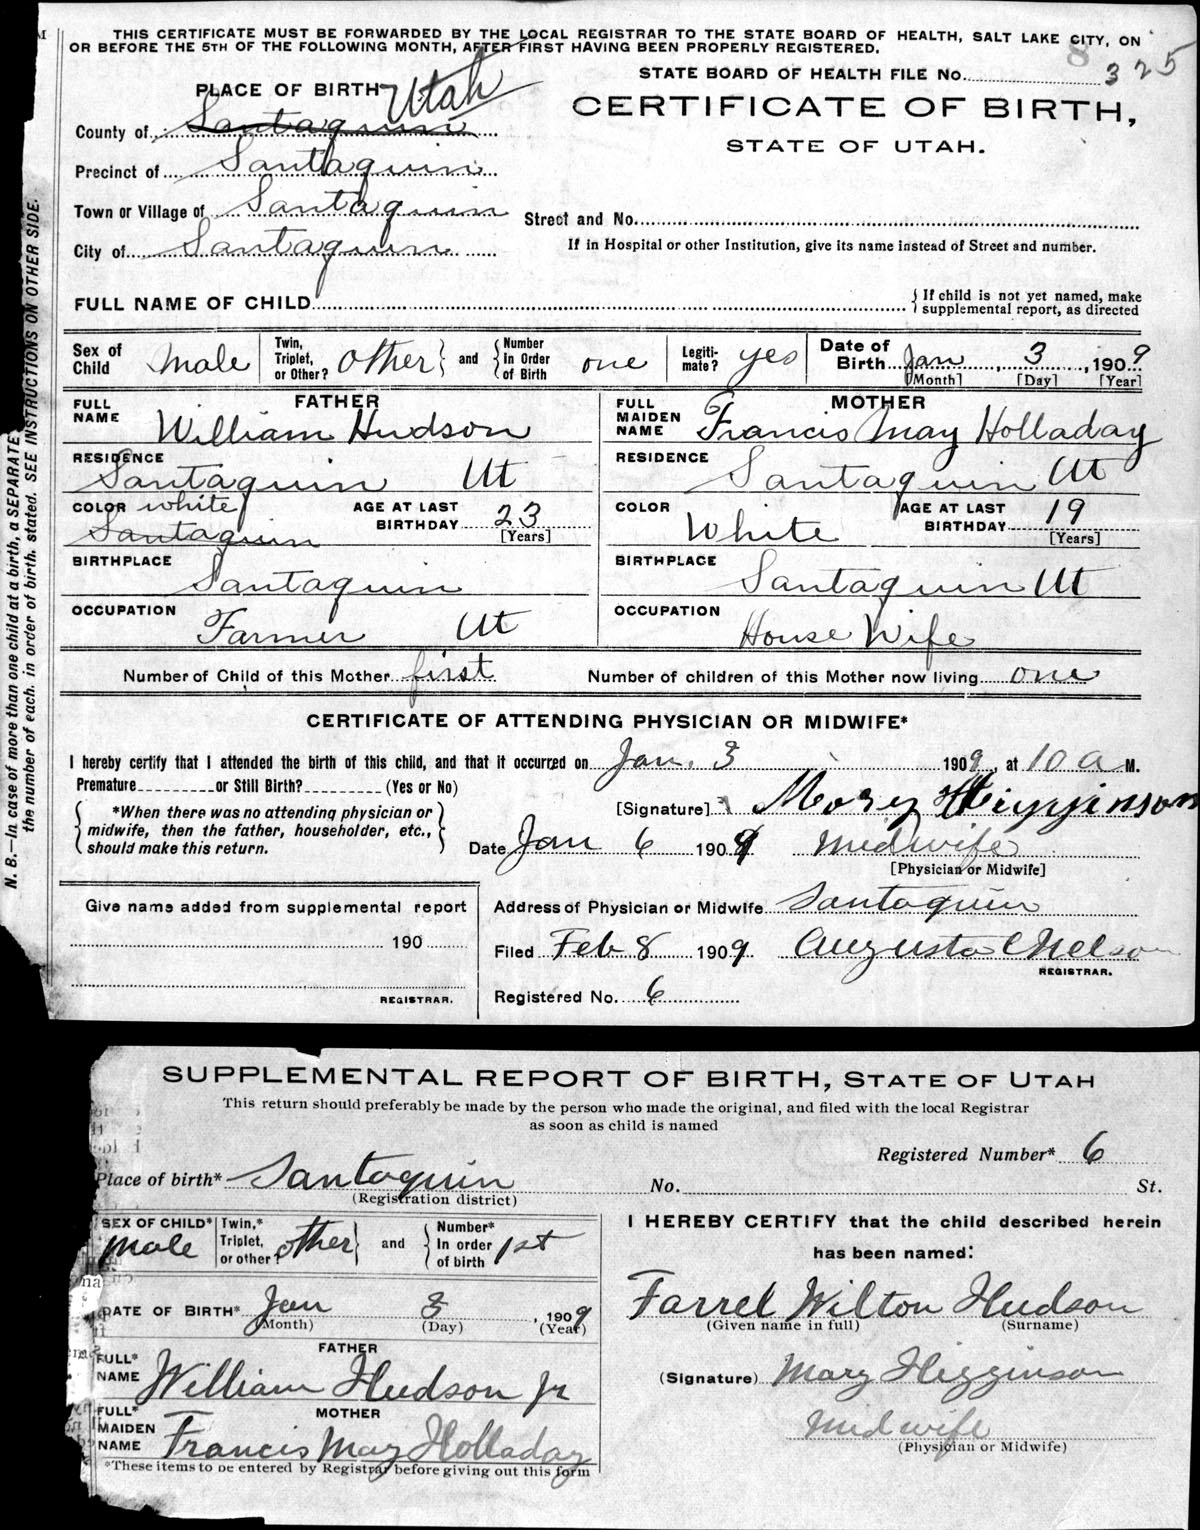 THIS CERTIFICATE MUST BE FORWARDED BY THE LOCAL REGISTRAR TO THE STATE BOARD OF HEALTH, SALT LAKE CITY, ON
OR BEFORE THE 5TH OF THE FOLLOWING MONTH, AFTER FIRST HAVING BEEN PROPERLY REGISTERED.
8
STATE BOARD OF HEALTH FILE No. 325
PLACE OF BIRTH Utah
CERTIFICATE OF BIRTH,
STATE OF UTAH.
County of Santaquin
Precinct of Santaquin
Town or Village of Santaquin
Street and No.
City of Santaquin
If in Hospital or other Institution, give its name instead of Street and number.
FULL NAME OF CHILD
If child is not yet named, make
supplemental report, as directed
Sex of Child male Twin, Triplet, or Other? other and Number In Order of Birth one Legiti-mate? yes Date of Birth Jan 3, 1909
[Month] [Day] [Year]
FATHER
FULL NAME William Hudson
MOTHER
FULL MAIDEN NAME Francis May Holladay
RESIDENCE Santaquin Ut
RESIDENCE Santaquin Ut
COLOR white AGE AT LAST BIRTHDAY 23 [Years]
Santaquin
COLOR White AGE AT LAST BIRTHDAY 19 [Years]
BIRTHPLACE Santaquin
BIRTHPLACE Santaquin Ut
OCCUPATION Farmer Ut
OCCUPATION House Wife
Number of Child of this Mother first Number of children of this Mother now living one
CERTIFICATE OF ATTENDING PHYSICIAN OR MIDWIFE*
I hereby certify that I attended the birth of this child, and that it occurred on Jan. 3 1909, at 10 a M.
Premature or Still Birth? (Yes or No)
*When there was no attending physician or
midwife, then the father, householder, etc.,
should make this return.
[Signature] Mary Higginson
Date Jan 6 1909 Midwife
[Physician or Midwife]
Give name added from supplemental report
190
REGISTRAR.
Address of Physician or Midwife Santaquin
Filed Feb 8 1909 Augusta C Nelson
REGISTRAR.
Registered No. 6
N. B.—In case of more than one child at a birth, a SEPARATE
the number of each, in order of birth, stated. SEE INSTRUCTIONS ON OTHER SIDE.
SUPPLEMENTAL REPORT OF BIRTH, STATE OF UTAH
This return should preferably be made by the person who made the original, and filed with the local Registrar
as soon as child is named
Registered Number* 6
Place of birth* Santaquin No. St.
(Registration district)
SEX OF CHILD* Male Twin,* Triplet, or other? other and Number* In order of birth 1st
DATE OF BIRTH* Jan 3, 1909
(Month) (Day) (Year)
FATHER
FULL* NAME William Hudson Jr
MOTHER
FULL* MAIDEN NAME Francis May Holladay
*These items to be entered by Registrar before giving out this form
I HEREBY CERTIFY that the child described herein
has been named:
Farrel Wilton Hudson
(Given name in full) (Surname)
(Signature) Mary Higginson
Midwife
(Physician or Midwife)